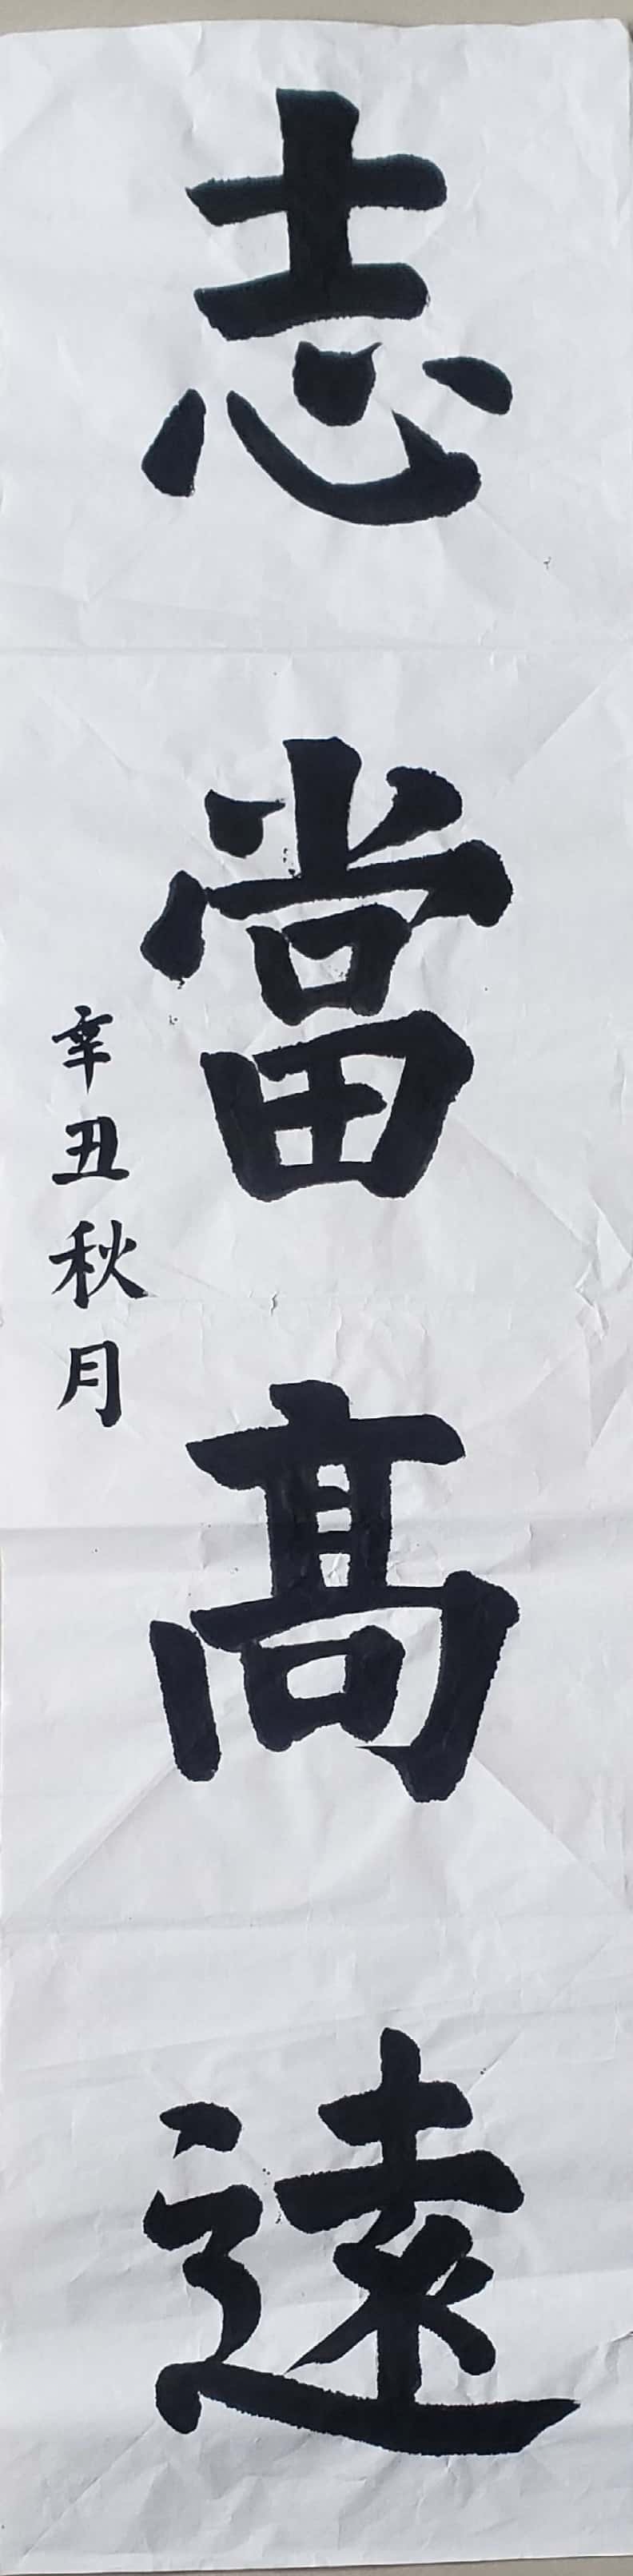 志當髙遠
辛丑秋月